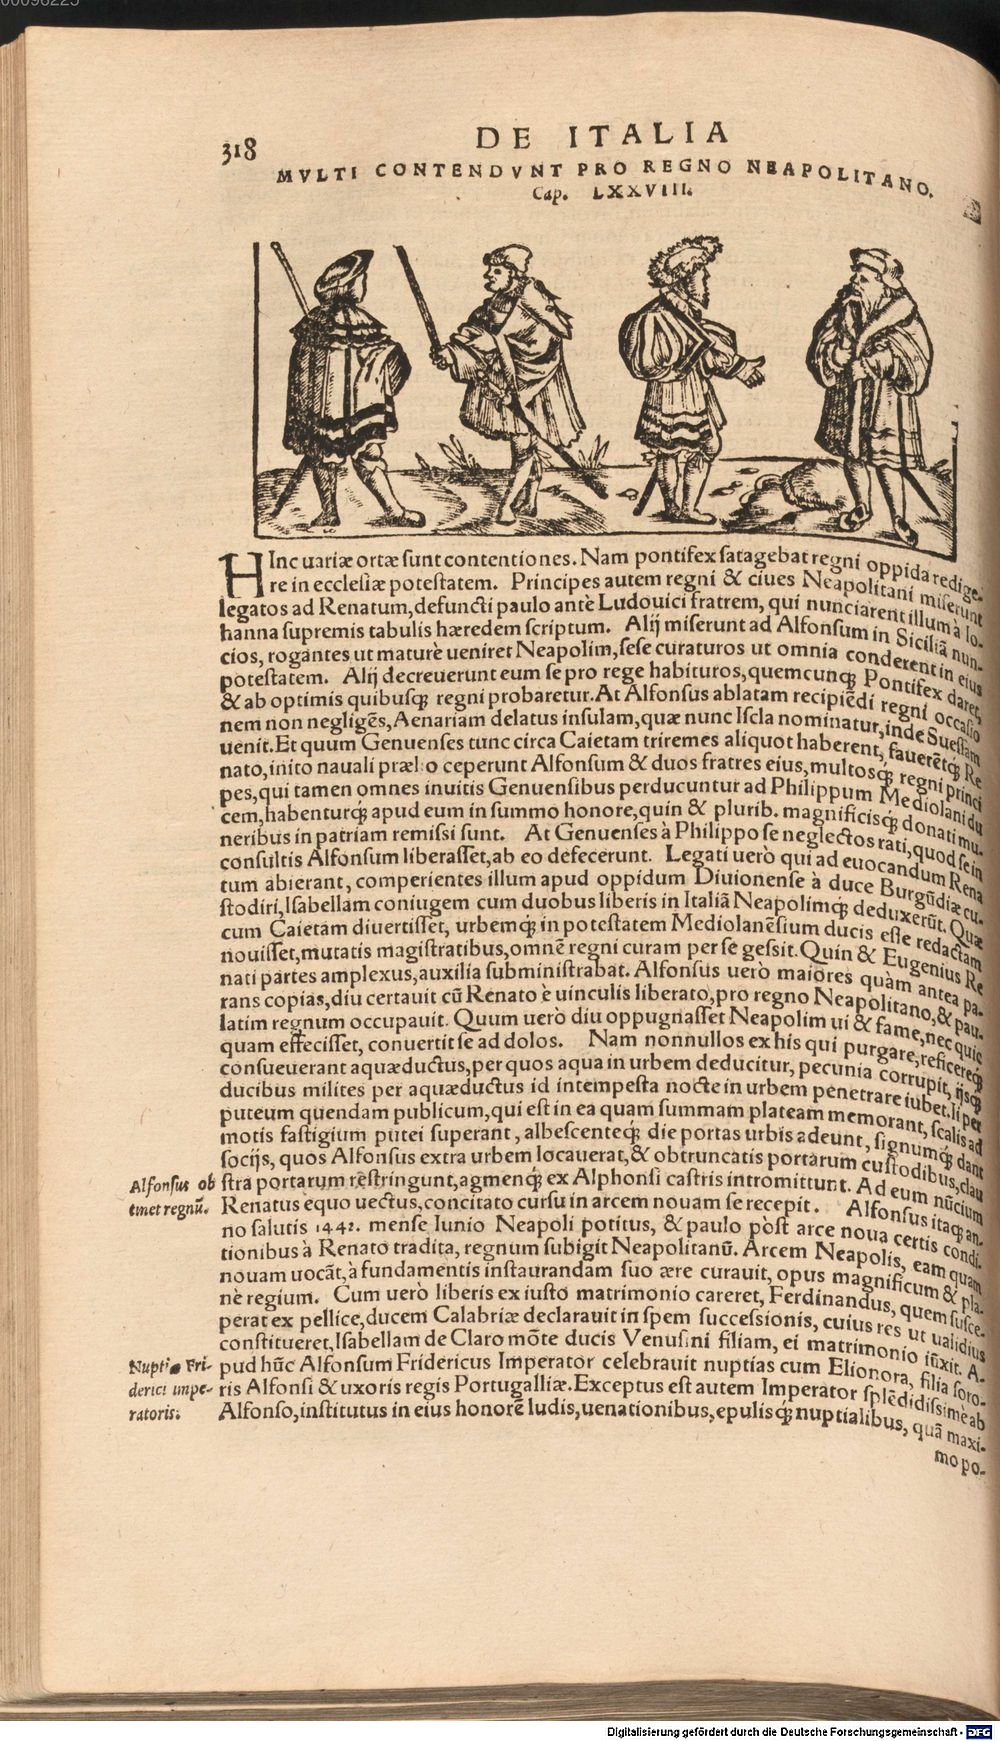 318
DE ITALIA
MVLTI CONTENDVNT PRO REGNO NEAPOLITANO.
Cap. LXXVIII.
HInc uariæ ortæ sunt contentiones. Nam pontifex satagebat regni oppida redige-
re in ecclesiæ potestatem. Principes autem regni & ciues Neapolitani miserunt
legatos ad Renatum, defuncti paulo antè Ludouici fratrem, qui nunciarent illum à Io-
hanna supremis tabulis hæredem scriptum. Alij miserunt ad Alfonsum in Siciliã nun-
cios, rogantes ut maturè ueniret Neapolim, sese curaturos ut omnia conderent in eius
potestatem. Alij decreuerunt eum se pro rege habituros, quemcunq; Pontifex daret,
& ab optimis quibusq; regni probaretur. At Alfonsus ablatam recipiẽdi regni occasio
nem non negligẽs, Aenariam delatus insulam, quæ nunc Iscla nominatur, inde Suessam
uenit. Et quum Genuenses tunc circa Caietam triremes aliquot haberent, fauerẽtq; Re
nato, inito nauali prælio ceperunt Alfonsum & duos fratres eius, multosq; regni princi
pes, qui tamen omnes inuitis Genuensibus perducuntur ad Philippum Mediolani du
cem, habenturq; apud eum in summo honore, quin & plurib. magnificisq; donati mu-
neribus in patriam remissi sunt. At Genuenses à Philippo se neglectos rati, quod se in
consultis Alfonsum liberasset, ab eo defecerunt. Legati uerò qui ad euocandum Rena
tum abierant, comperientes illum apud oppidum Diuionense à duce Burgũdiæ cu-
stodiri, Isabellam coniugem cum duobus liberis in Italiã Neapolimq; deduxerũt. Quæ
cum Caietam diuertisset, urbemq; in potestatem Mediolanẽsium ducis esse redactam
nouisset, mutatis magistratibus, omnẽ regni curam per se gessit. Quin & Eugenius Re
nati partes amplexus, auxilia subministrabat. Alfonsus uerò maiores quàm antea pa-
rans copias, diu certauit cũ Renato è uinculis liberato, pro regno Neapolitano, & pau-
latim regnum occupauit. Quum uerò diu oppugnasset Neapolim ui & fame, nec quic
quam effecisset, conuertit se ad dolos. Nam nonnullos ex his qui purgare, reficereq;
consueuerant aquæductus, per quos aqua in urbem deducitur, pecunia corrupit, ijsq;
ducibus milites per aquæductus id intempesta nocte in urbem penetrare iubet. Ii per
puteum quendam publicum, qui est in ea quam summam plateam memorant, scalis ad
motis fastigium putei superant, albescenteq; die portas urbis adeunt, signumq; dant
socijs, quos Alfonsus extra urbem locauerat, & obtruncatis portarum custodibus, clau
stra portarum restringunt, agmenq; ex Alphonsi castris intromittunt. Ad eum nũcium
Renatus equo uectus, concitato cursu in arcem nouam se recepit. Alfonsus itaq; an-
no salutis 1442. mense Iunio Neapoli potitus, & paulo pòst arce noua certis condi-
tionibus à Renato tradita, regnum subigit Neapolitanũ. Arcem Neapolis, eam quam
nouam uocãt, à fundamentis instaurandam suo ære curauit, opus magnificum & pla-
nè regium. Cum uerò liberis ex iusto matrimonio careret, Ferdinandus, quem susce-
perat ex pellice, ducem Calabriæ declarauit in spem successionis, cuius res ut ualidius
constitueret, Isabellam de Claro mõte ducis Venusini filiam, ei matrimonio iũxit. A-
pud hũc Alfonsum Fridericus Imperator celebrauit nuptias cum Elionora, filia soro-
ris Alfonsi & uxoris regis Portugalliæ. Exceptus est autem Imperator splẽdidissimè ab
Alfonso, institutus in eius honorẽ ludis, uenationibus, epulisq; nuptialibus, quã maxi-
mo po-
Alfonsus ob
tinet regnũ.
Nuptiæ Fri-
derici impe-
ratoris.
Digitalisierung gefördert durch die Deutsche Forschungsgemeinschaft - DFG